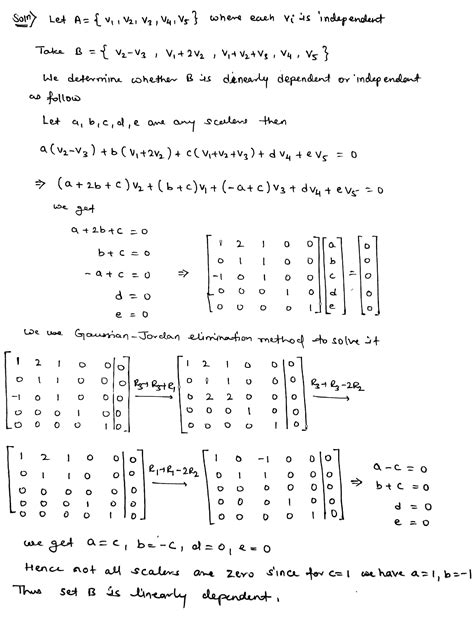 Soln) Let A = { v₁, v₂, v₃, v₄, v₅ } where each vᵢ is independent
Take B = { v₂-v₃ , v₁+2v₂ , v₁+v₂+v₃, v₄, v₅ }
We determine whether B is linearly dependent or independent
as follow
Let a, b, c, d, e are any scalers then
a(v₂-v₃) + b(v₁+2v₂) + c(v₁+v₂+v₃) + dv₄ + ev₅ = 0
⇒ (a+2b+c)v₂ + (b+c)v₁ + (-a+c)v₃ + dv₄ + ev₅ = 0
we get
a+2b+c = 0
b+c = 0
-a+c = 0
d = 0
e = 0
⇒
1 2 1 0 0 a 0
0 1 1 0 0 b 0
-1 0 1 0 0 c = 0
0 0 0 1 0 d 0
0 0 0 0 1 e 0
we use Gaussian-Jordan elimination method to solve it
1 2 1 0 0 | 0
0 1 1 0 0 | 0
-1 0 1 0 0 | 0
0 0 0 1 0 | 0
0 0 0 0 1 | 0
R₃→R₃+R₁
1 2 1 0 0 | 0
0 1 1 0 0 | 0
0 2 2 0 0 | 0
0 0 0 1 0 | 0
0 0 0 0 1 | 0
R₃→R₃-2R₂
1 2 1 0 0 | 0
0 1 1 0 0 | 0
0 0 0 0 0 | 0
0 0 0 1 0 | 0
0 0 0 0 1 | 0
R₁→R₁-2R₂
1 0 -1 0 0 | 0
0 1 1 0 0 | 0
0 0 0 0 0 | 0
0 0 0 1 0 | 0
0 0 0 0 1 | 0
⇒
a-c = 0
b+c = 0
d = 0
e = 0
we get a=c, b=-c, d=0, e=0
Hence not all scalers are zero since for c=1 we have a=1, b=-1
Thus set B is linearly dependent.